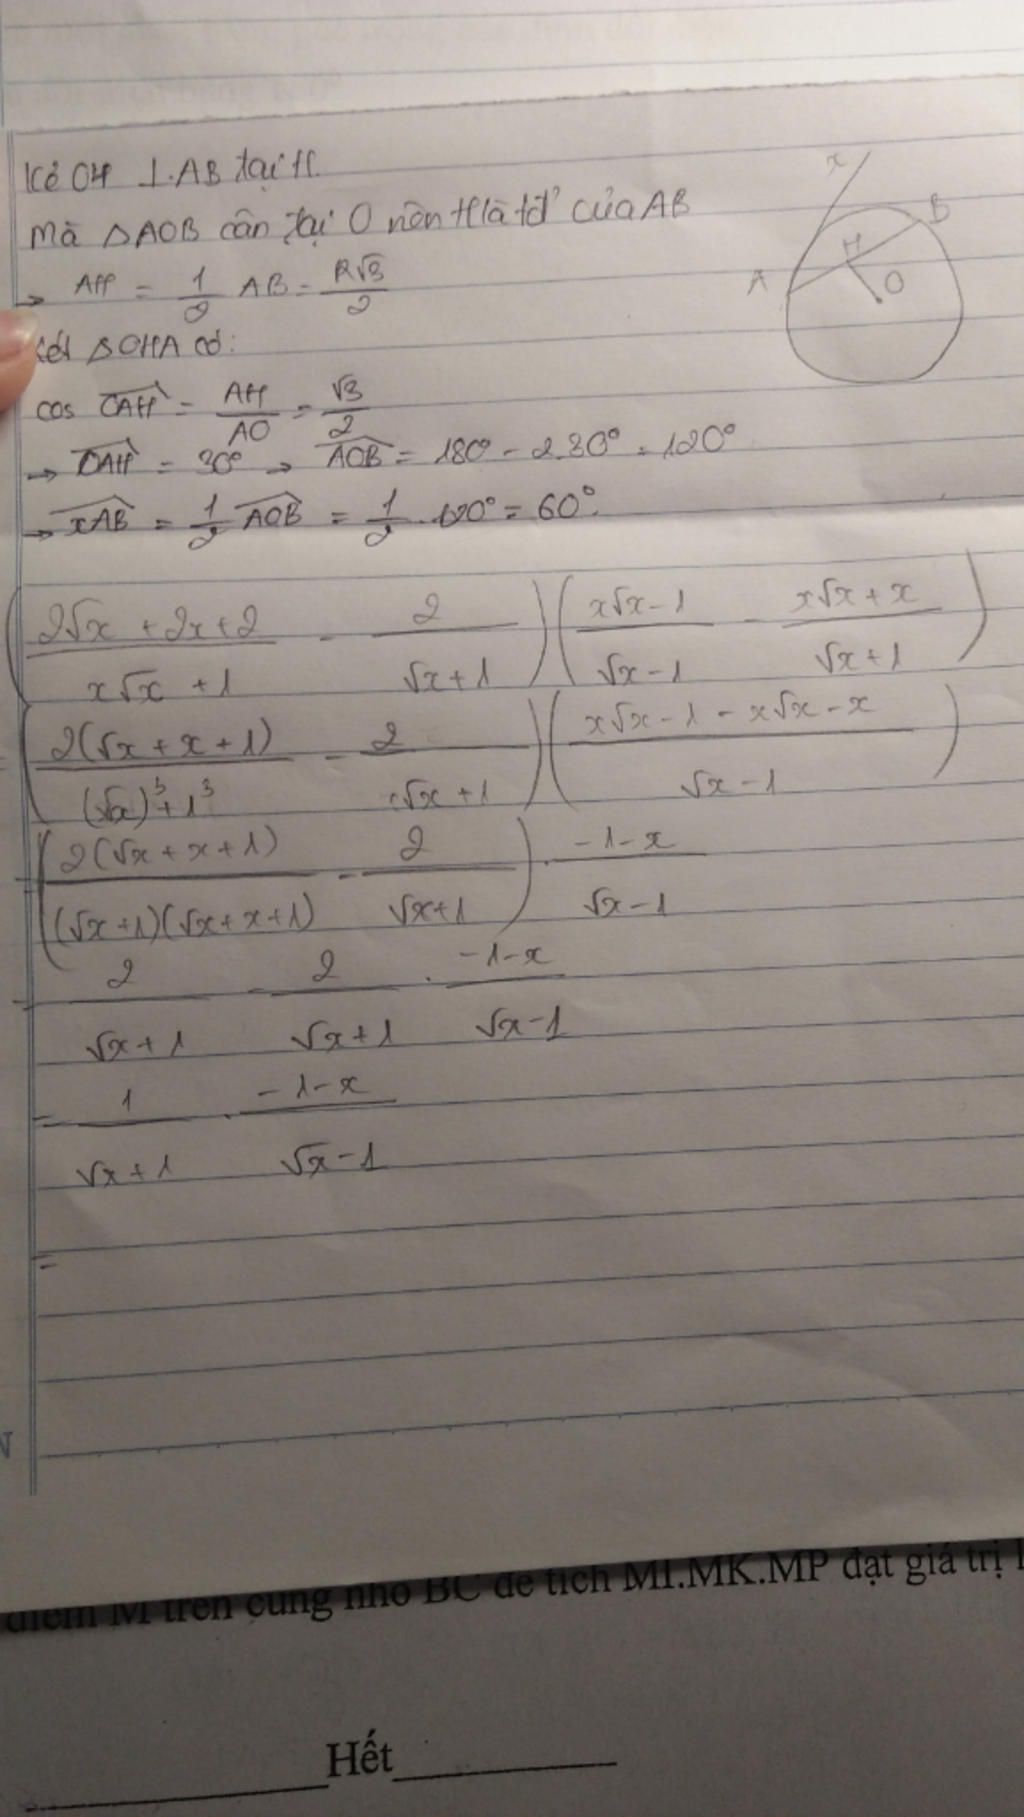 Kẻ OH ⊥ AB tại H.
Mà △AOB cân tại O nên H là tđ của AB
→ AH = 1/2 AB = R√3/2
Xét △OHA có:
cos OAH = AH/AO = √3/2
→ OAH = 30° → AOB = 180° - 2.30° = 120°
→ xAB = 1/2 AOB = 1/2 . 120° = 60°.
x
B
H
A
O
((2√x + 2x + 2)/(x√x + 1) - 2/(√x + 1)) ((x√x - 1)/(√x - 1) - (x√x + x)/(√x + 1))
= (2(√x + x + 1)/((√x)³ + 1³) - 2/(√x + 1)) ((x√x - 1 - x√x - x)/(√x - 1))
= (2(√x + x + 1)/((√x + 1)(√x + x + 1)) - 2/(√x + 1)) . (-1 - x)/(√x - 1)
= 2/(√x + 1) - 2/(√x + 1) . (-1 - x)/(√x - 1)
= 1/(√x + 1) . (-1 - x)/(√x - 1)
=
điểm M trên cung nhỏ BC để tích MI.MK.MP đạt giá trị
Hết